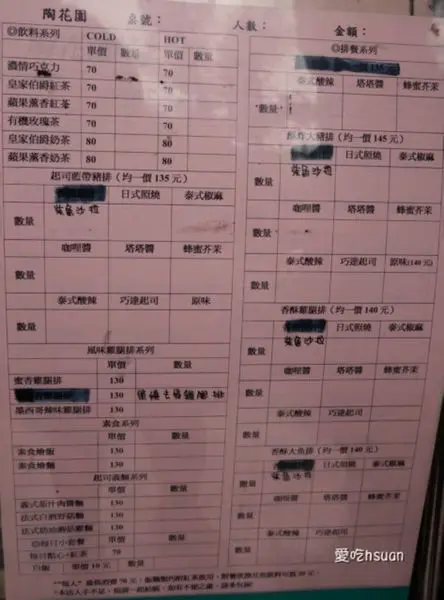 陶花園 桌號： 人數： 金額：
◎飲料系列 COLD HOT
單價 數量 單價 數量
濃情巧克力 70 70
皇家伯爵紅茶 70 70
蘋果薰香紅茶 70 70
有機玫瑰茶 70 70
皇家伯爵奶茶 80 80
蘋果薰香奶茶 80 80
起司藍帶豬排（均一價 135 元）
柴魚沙拉 日式照燒 泰式椒麻
數量
咖哩醬 塔塔醬 蜂蜜芥茉
數量
泰式酸辣 巧達起司 原味
數量
風味雞腿排系列
單價 數量
蜜香雞腿排 130
130
墨西哥辣味雞腿排 130
素食系列
單價 數量
素食燴飯 130
素食燴麵 130
起司義麵系列
單價 數量
義式茄汁肉醬麵 130
130
130
◎每日小套餐 數量
每日點心+紅茶 70
白飯 單價 10 元 數量
◎排餐系列
泰式酸辣 塔塔醬 蜂蜜芥茉
數量
大豬排（均一價 145 元）
柴魚沙拉 日式照燒 泰式椒麻
數量
咖哩醬 塔塔醬 蜂蜜芥茉
數量
泰式酸辣 巧達起司 原味(140 元)
數量
香酥雞腿排（均一價 140 元）
柴魚沙拉 日式照燒 泰式椒麻
數量
咖哩醬 塔塔醬 蜂蜜芥茉
數量
泰式酸辣 巧達起司
數量
香酥大魚排（均一價 140 元）
柴魚沙拉 日式照燒 泰式椒麻
數量
咖哩醬 塔塔醬 蜂蜜芥茉
數量
泰式酸辣 巧達起司
數量
愛吃hsuan